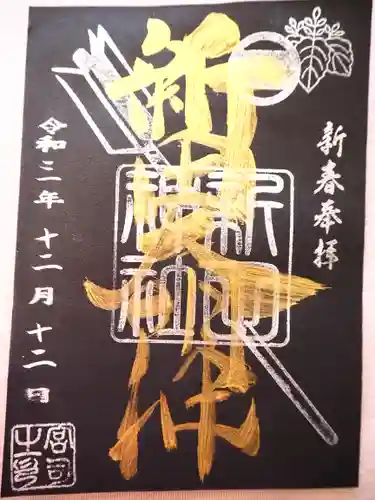 新春奉拝
新田
神社
令和三年十二月十二日
宮司
之印